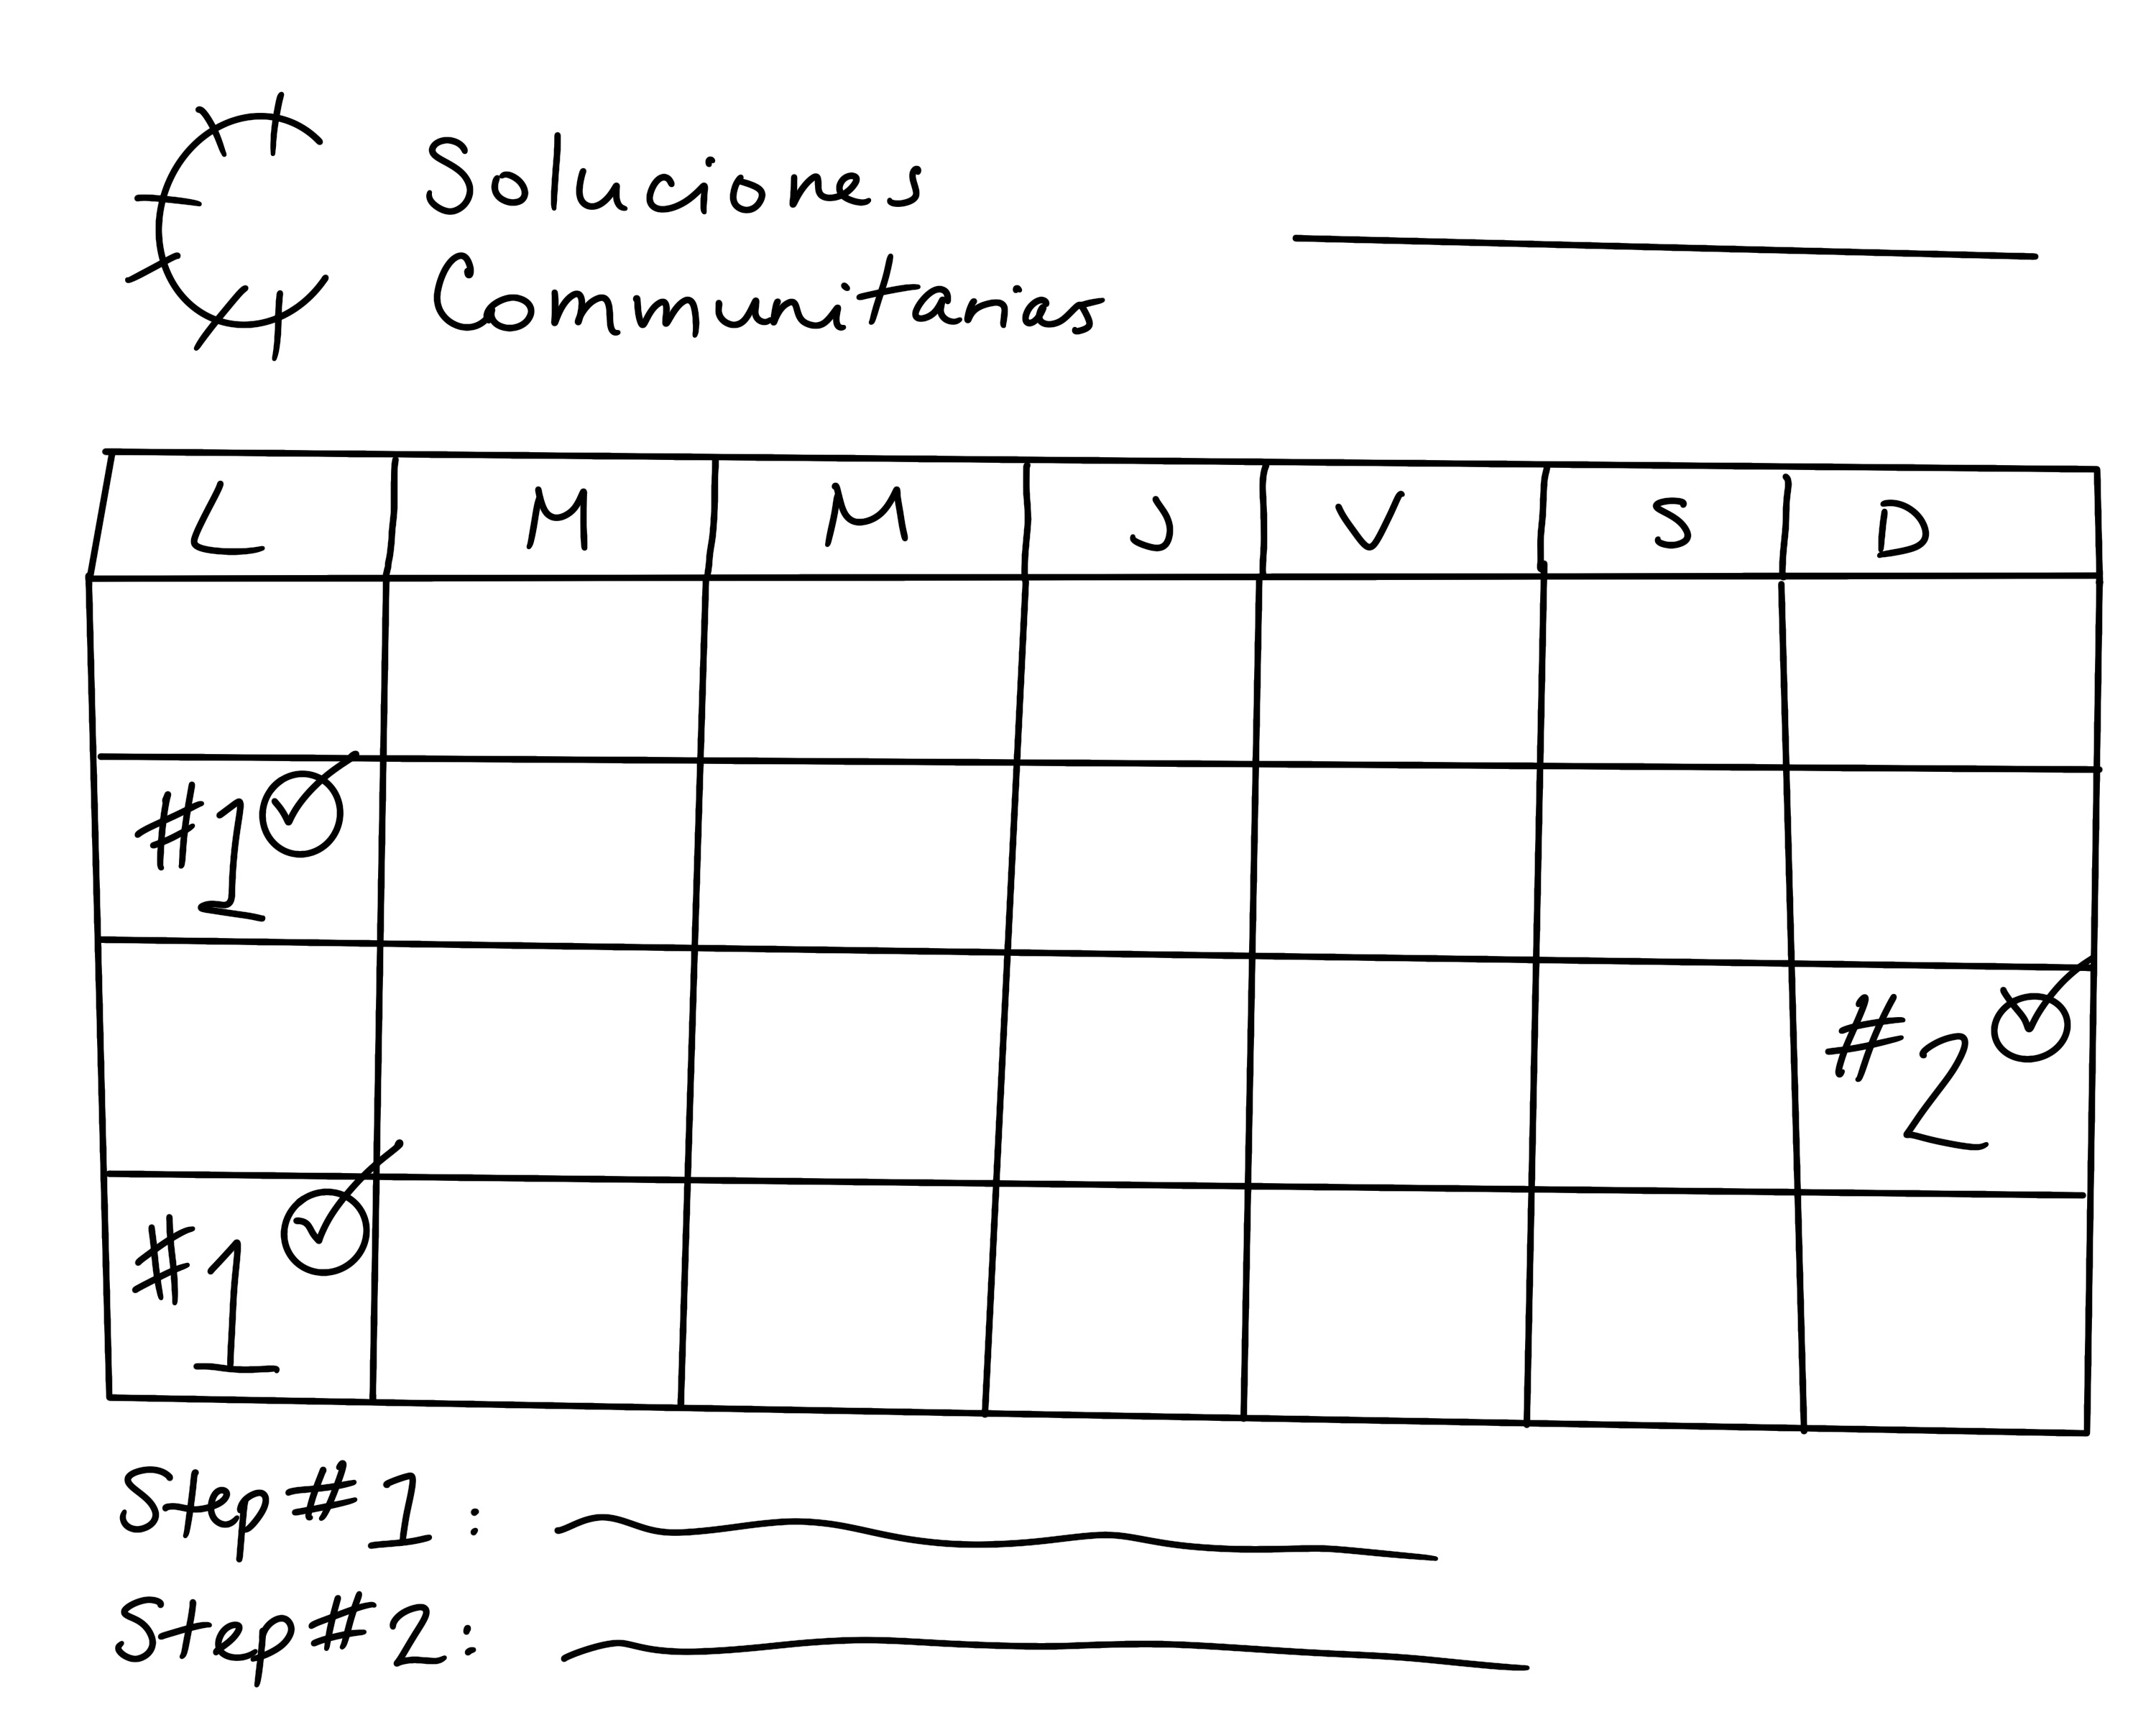 Soluciones
Communitarias
L M M J V S D
#1
#2
#1
Step #1:
Step #2: